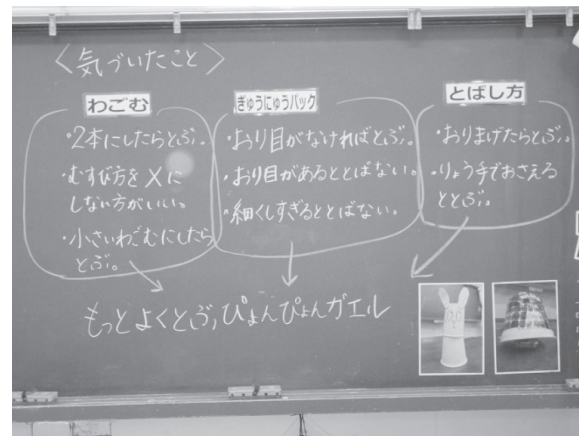 〈気づいたこと〉
わごむ
・2本にしたらとぶ。
・むすび方を×に
しない方がいい。
・小さいわごむにしたら
とぶ。
ぎゅうにゅうパック
・おり目がなければとぶ。
・おり目があるととばない。
・細くしすぎるととばない。
とばし方
・おりまげたらとぶ。
・りょう手でおさえる
ととぶ。
もっとよくとぶ,ぴょんぴょんガエル